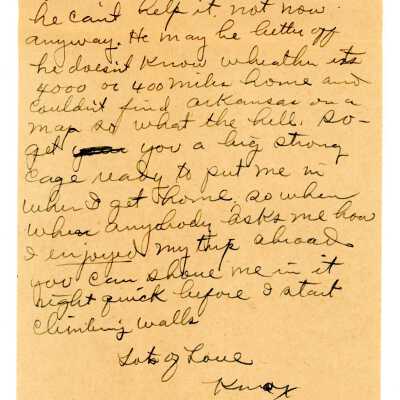 he can't help it, not now
anyway. He may be better off
he doesn't know wheather its
4000 or 400 miles home and
couldn't find arkansas on a
map so what the hell. So-
get you a big strong
cage ready to put me in
when I get home. so when
when anybody asks me how
I enjoyed my trip abroad
you can shove me in it
right quick before I start
climbing walls
Lots of Love
Knox